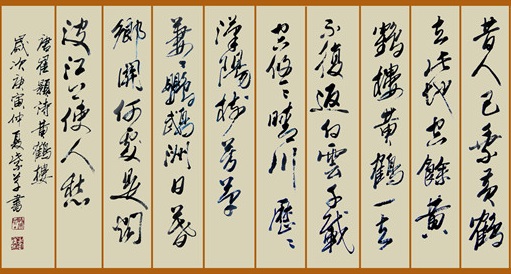 昔人已乘黄鶴
去此地空餘黄
鶴樓黄鶴一去
不復返白雲千載
空悠〻晴川歷〻
漢陽樹芳草
萋〻鸚鵡洲日暮
鄉關何處是烟
波江上使人愁
唐崔顥詩黄鶴樓
歲次庚寅仲夏書